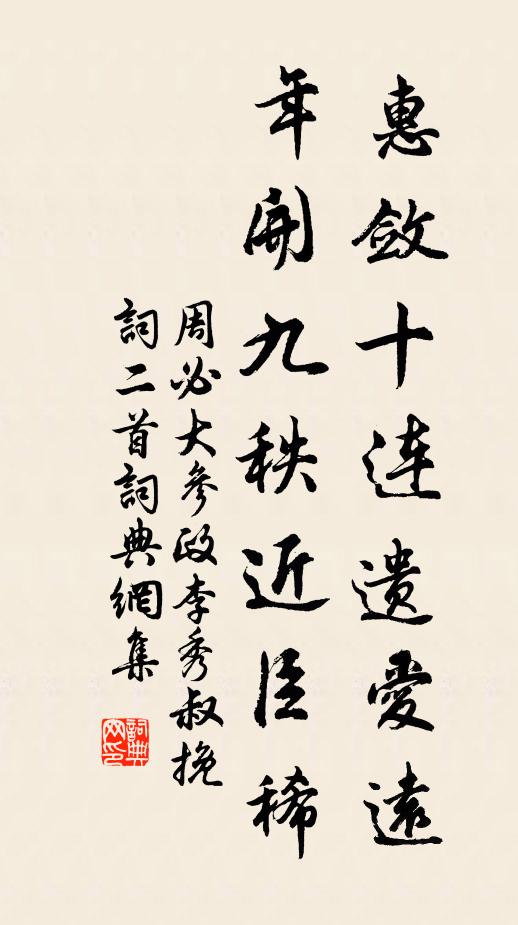 惠斂十連遺愛遠
年開九秩近臣稀
周必大參政李秀叔挽
詞二首詞典網集
詞典
网印